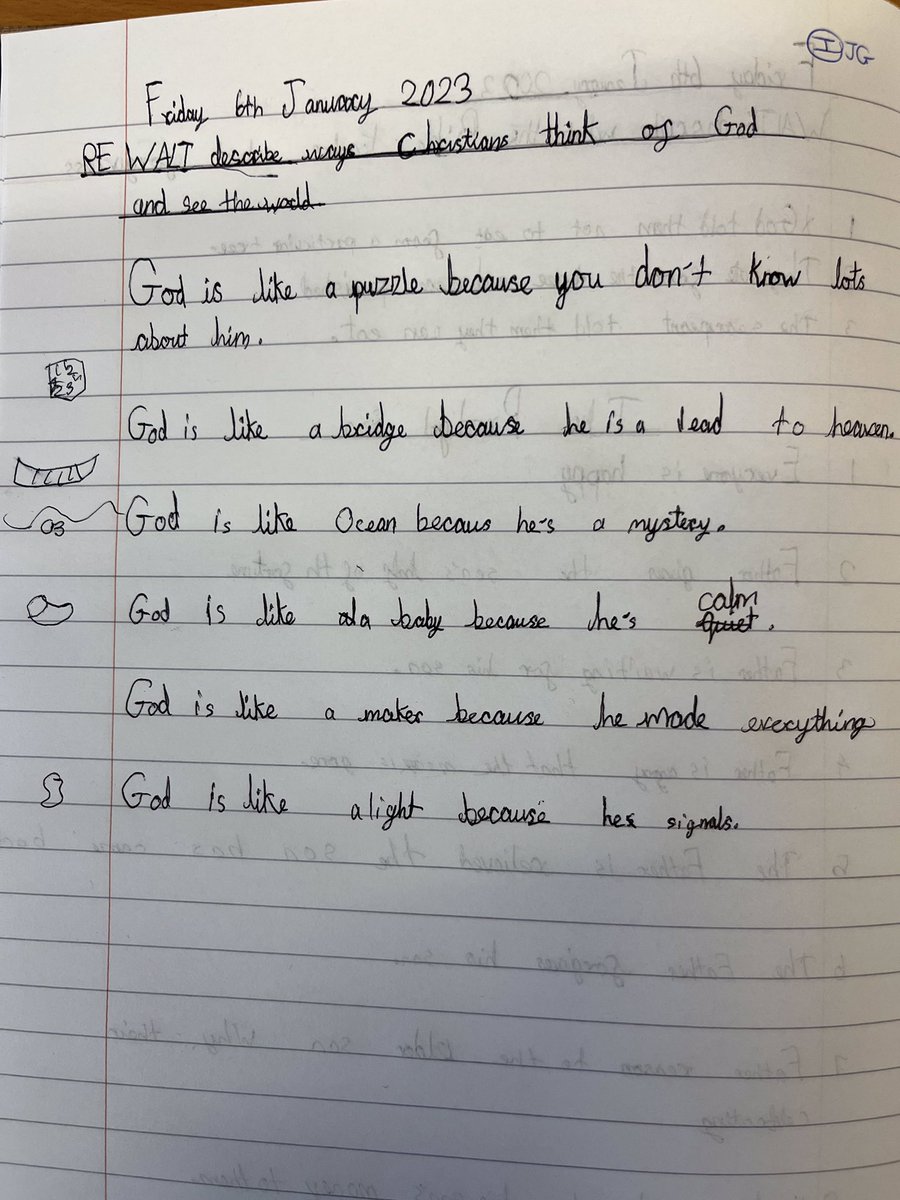 I JG
Friday 6th January 2023
RE WALT describe ways Christians think of God
and see the world
God is like a puzzle because you don't know lots
about him.
God is like a bridge because he is a lead to heaven.
God is like Ocean becaus he's a mystery.
God is like a baby because he's calm
quiet.
God is like a maker because he made everything
God is like a light because hes signals.